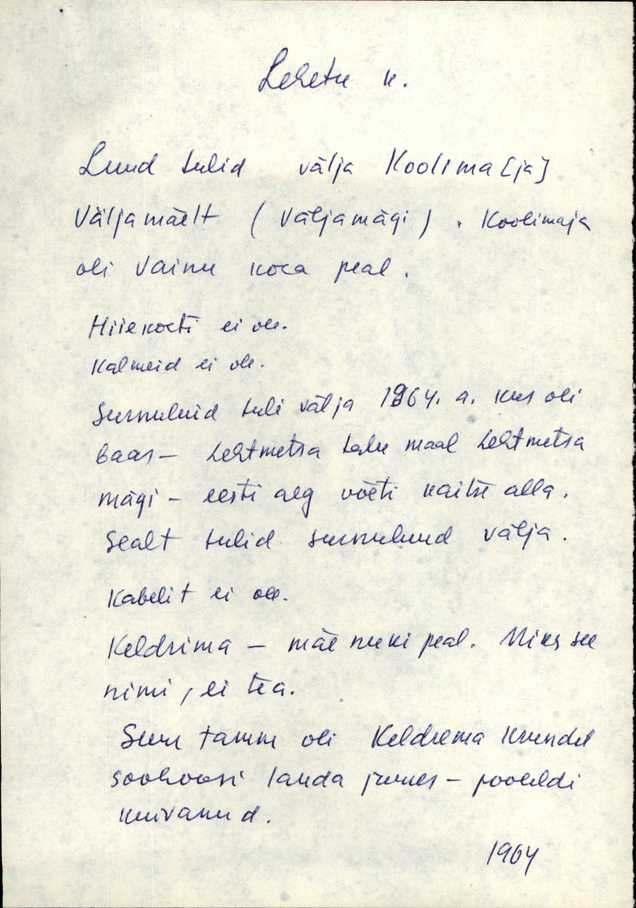 Lehetu k.
Luud tulid välja Koolima[ja]
Väljamäelt (Väljamägi). Koolimaja
oli Vainu koca peal.
Hiiekocti ei ole.
Kalmeid ei ole.
Surnuluid tuli välja 1964. a. kus oli
baas – Lehtmetsa talu maal Lehtmetsa
mägi – eesti aeg võeti kaitse alla.
Sealt tulid surnuluud välja.
Kabelit ei ole.
Keldrima – mäe nuki peal. Miks see
nimi, ei tea.
Suur tamm oli Keldrema krundil
lauda juures – pooleldi
kuivanud.
1964